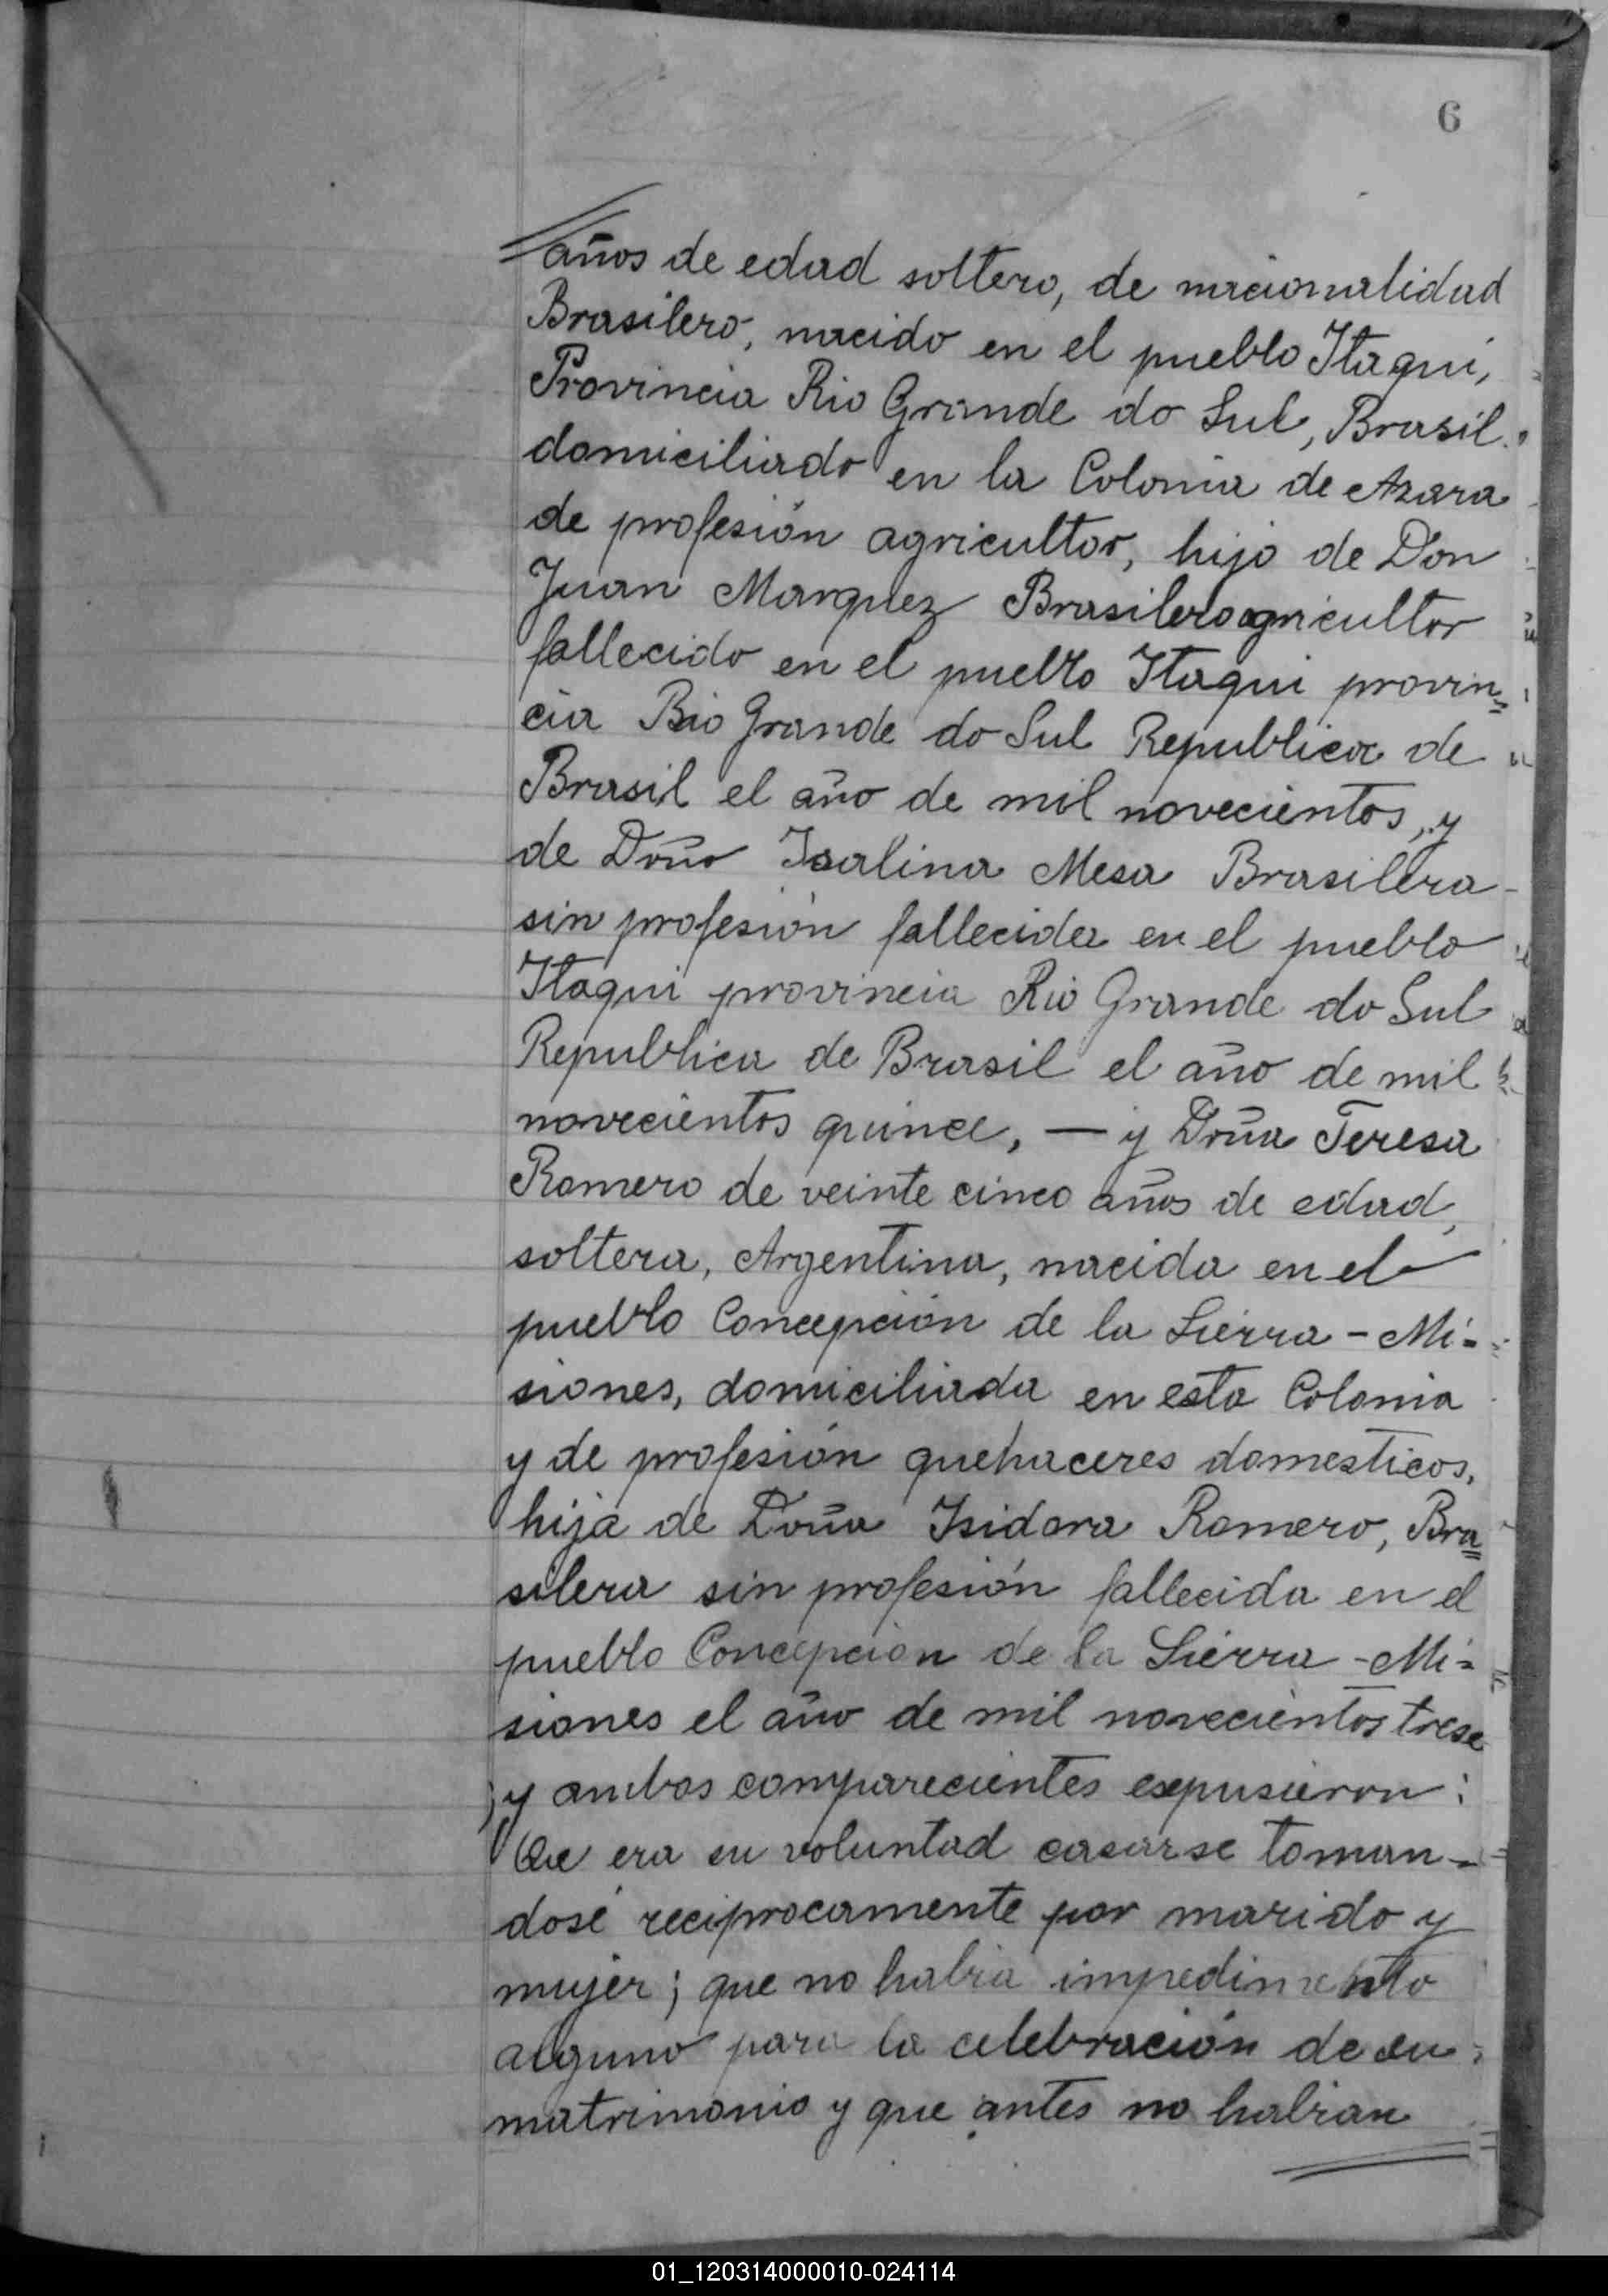 6
años de edad soltero, de nacionalidad
Brasilero, nacido en el pueblo Itaqui,
Provincia Rio Grande do Sul, Brasil.
domiciliado en la Colonia de Azara
de profesión agricultor, hijo de Don
Juan Marquez Brasilero agricultor
fallecido en el pueblo Itaqui provin=
cia Rio Grande do Sul Republica de
Brasil el año de mil novecientos, y
de Doña Isalina Mesa Brasilera
sin profesión fallecida en el pueblo
Itaqui provincia Rio Grande do Sul
Republica de Brasil el año de mil
novecientos quince, — y Doña Teresa
Romero de veinte cinco años de edad,
soltera, Argentina, nacida en el
pueblo Concepción de la Sierra - Mi=
siones, domiciliada en esta Colonia
y de profesión quehaceres domesticos,
hija de Doña Isidora Romero, Bra=
silera sin profesión fallecida en el
pueblo Concepcion de la Sierra - Mi=
siones el año de mil novecientos trese
; y ambos comparecientes expusieron:
Que era su voluntad casarse toman=
dosé reciprocamente por marido y
mujer; que no habia impedimento
alguno para la celebración de su
matrimonio y que antes no habian
01_120314000010-024114